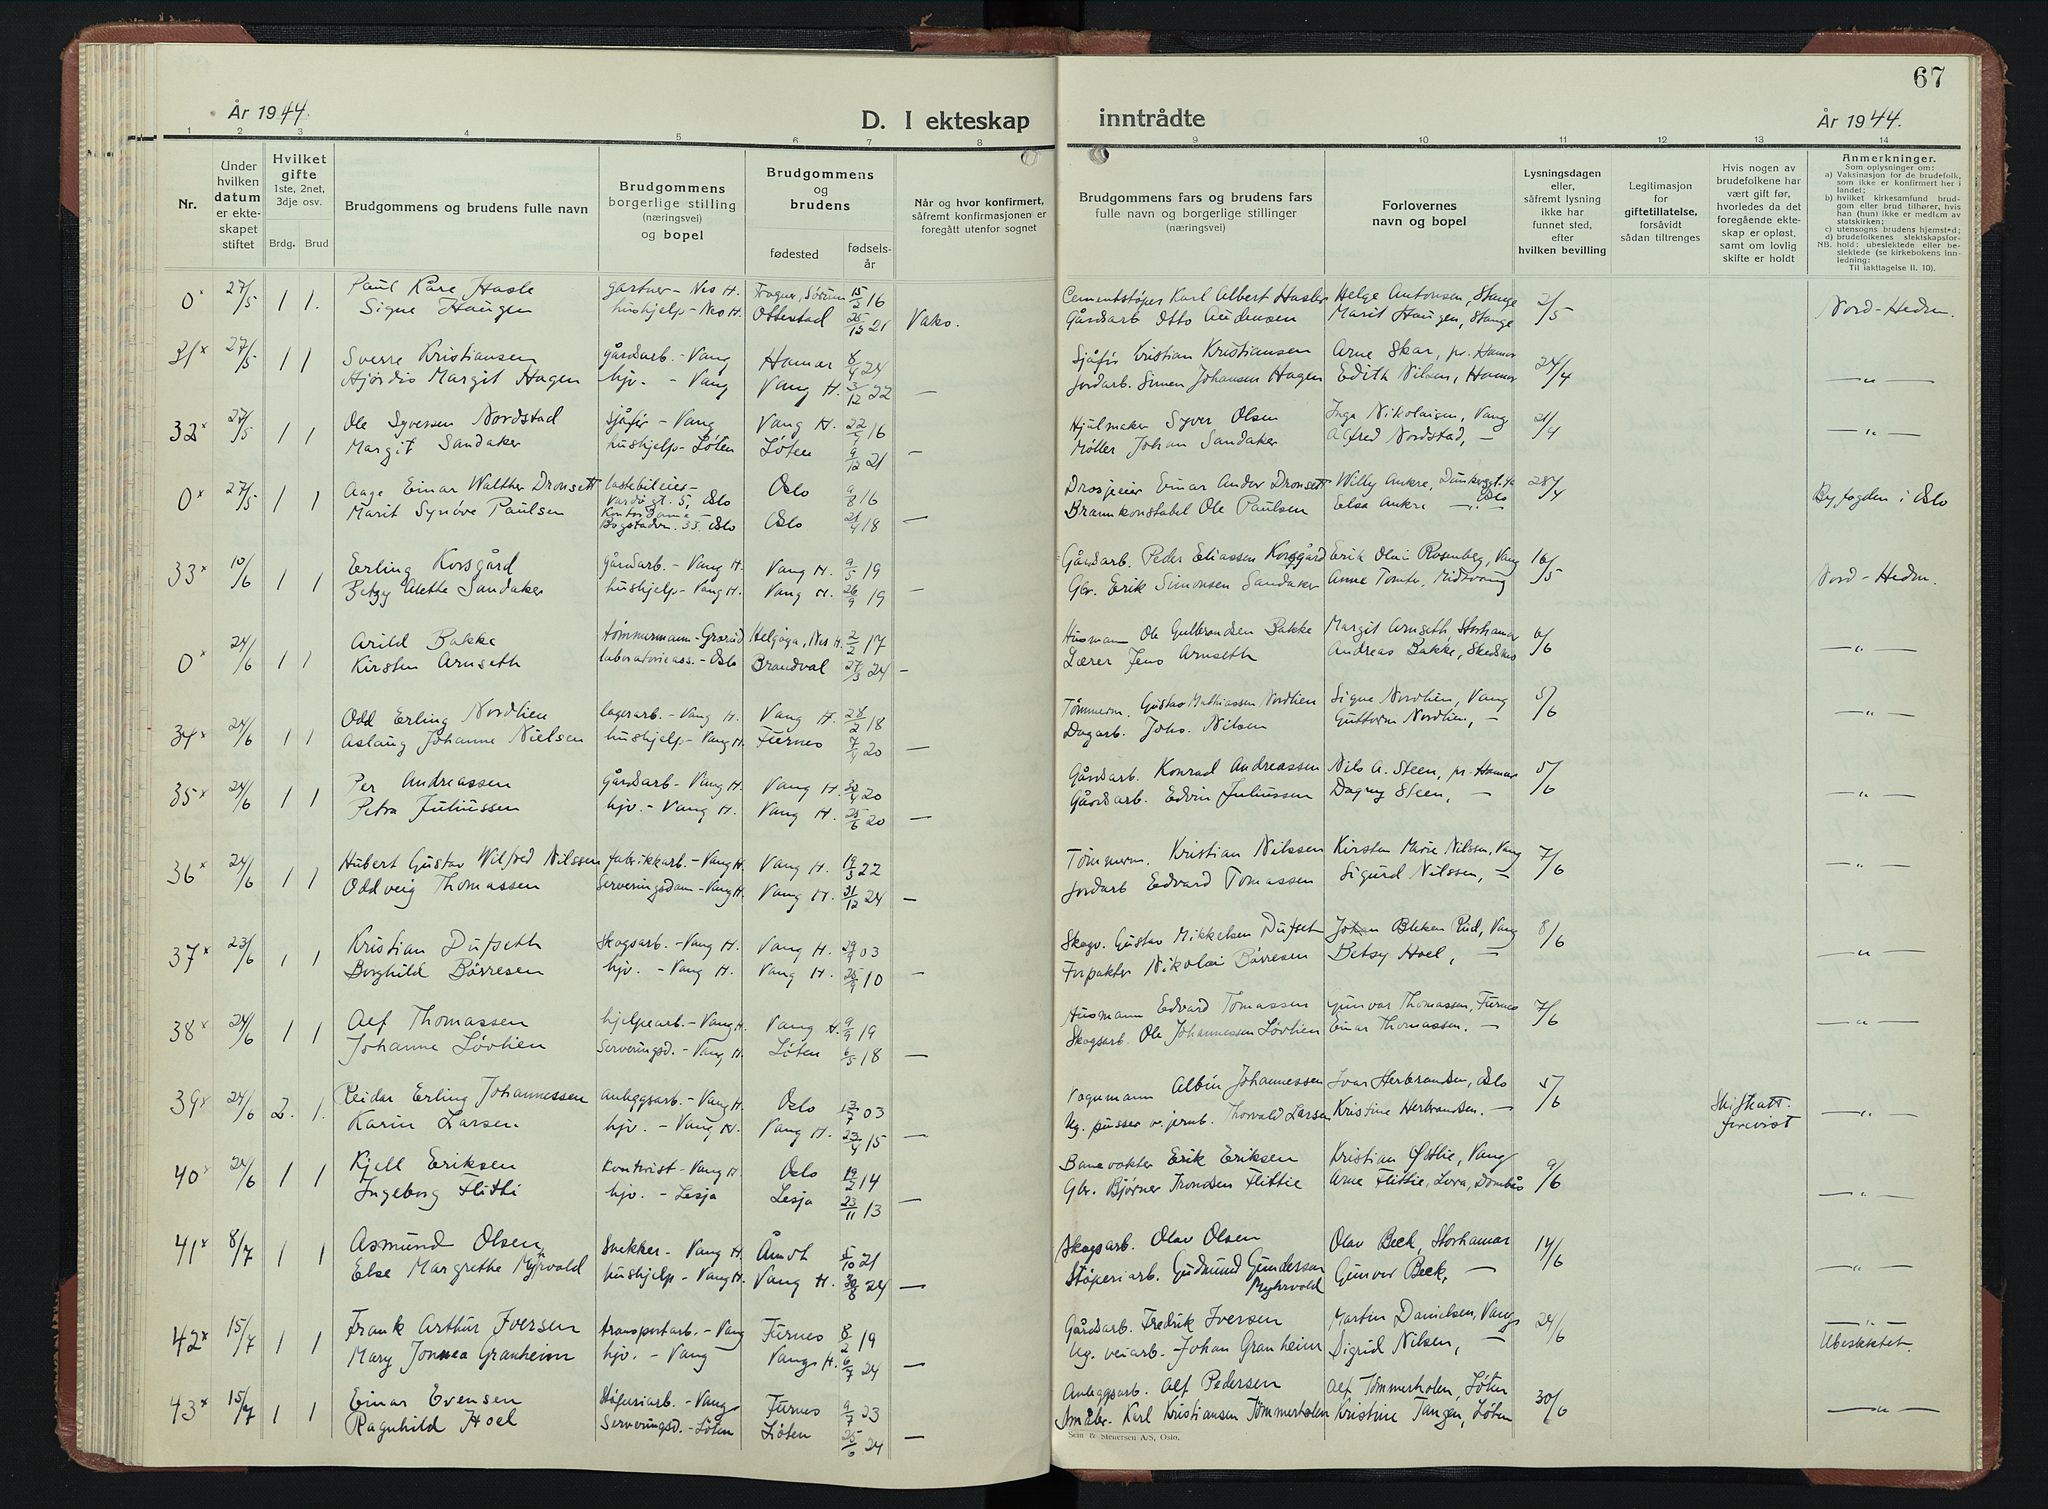 67
År 1944.
D. I ekteskap
inntrådte
År 1944.
1 2 3 4 5 6 7 8 9 10 11 12 13 14
Nr.
Under hvilken datum er ekteskapet stiftet
Hvilket gifte 1ste, 2net, 3dje osv.
Brdg. Brud
Brudgommens og brudens fulle navn
Brudgommens borgerlige stilling (næringsvei) og bopel
Brudgommens og brudens
fødested
fødselsår
Når og hvor konfirmert, såfremt konfirmasjonen er foregått utenfor sognet
Brudgommens fars og brudens fars fulle navn og borgerlige stillinger (næringsvei)
Forlovernes navn og bopel
Lysningsdagen eller, såfremt lysning ikke har funnet sted, efter hvilken bevilling
Legitimasjon for giftetillatelse, forsåvidt sådan tiltrenges
Hvis nogen av brudefolkene har vært gift før, hvorledes da det foregående ekteskap er opløst, samt om lovlig skifte er holdt
Anmerkninger.
Som oplysninger om:
a) Vaksinasjon for de brudefolk, som ikke er konfirmert her i landet;
b) hvilket kirkesamfund brudgom eller brud tilhører, hvis han (hun) ikke er medlem av statskirken;
c) utensogns brudens hjemsted;
d) brudefolkenes slektskapsforhold: ubeslektede eller beslektede (se kirkebokens innledning:
NB.
Til iakttagelse II. 10).
0x 27/5 1 1. Paul Kåre Hasle gartner - Nes H. Frogner, Sørum 15/2 16 Cementstøper Karl Albert Hasler Helge Antonsen, Stange 2/5 Nord-Hedm.
Signe Haugen hushjelp - Nes H. Ottestad 25/12 21 Vaks. Gårdsarb Otto Audensen Marit Haugen, Stange
31x 27/5 1 1 Sverre Kristiansen gårdsarb. - Vang Hamar 8/4 24 Sjåfør Kristian Kristiansen Arne Skar, pr. Hamar 24/4 — " —
Hjørdis Margit Hagen hjv. - Vang Vang H. 3/12 22 — Jordarb. Simen Johansen Hagen Edith Nilsen, Hamar
32x 27/5 1 1 Ole Syversen Nordstad Sjåfør - Vang Vang H. 22/9 16 Hjulmaker Syver Olsen Inga Nikolaisen, Vang 21/4 — " —
Margit Sandaker hushjelp - Løten Løten 9/12 21 — Møller Johan Sandaker Alfred Nordstad, —
0x 27/5 1 1 Aage Einar Walther Dronsett lastebileier - Vardøgt. 5, Oslo Oslo 9/8 16 Drosjeeier Einar Ander Dronsett Willy Ankre, Oslo 28/4 Byfogden i Oslo
Marit Synøve Paulsen Kontordame - Bogstadvn. 33, Oslo Oslo 21/4 18 — Brannkonstabel Ole Paulsen Elsa Ankre — " —
33x 10/6 1 1 Erling Korsgård gårdsarb. - Vang H. Vang H. 9/5 19 Gårdsarb. Peder Eliassen Korsgård Erik Olai Rosenberg, Vang 16/5 Nord-Hedm.
Betzy Alethe Sandaker hushjelp - Vang H. Vang H. 26/9 19 — Gbr. Erik Simonsen Sandaker Anne Tomter, Midtvang
0x 24/6 1 1 Arild Bakke tømmermann - Grorud Helgøya, Nes H. 2/2 17 Husmann Ole Gulbrandsen Bakke Margit Arnseth, Storhamar 6/6 — " —
Kirsten Arnseth laboratorieass. - Oslo Brandval 27/3 24 — Lærer Jens Arnseth Andreas Bakke, Skedsmo
34x 24/6 1 1 Odd Erling Nordlien lagerarb. - Vang H. Vang H. 28/2 18 Tømmerm. Gustav Mathiassen Nordlien Signe Nordlien, Vang 5/6 — " —
Aslaug Johanne Nielsen hushjelp - Vang H. Furnes 7/9 20 — Dagarb. Johs. Nilsen Guttorm Nordlien, —
35x 24/6 1 1 Per Andreassen Gårdsarb - Vang H. Vang H. 30/4 20 Gårdsarb. Konrad Andreassen Nils A. Steen, pr. Hamar 5/6 — " —
Petra Juliussen hjv. - Vang H. Vang H. 25/6 20 — Gårdsarb. Edvin Juliussen Dagny Steen, —
36x 24/6 1 1 Hubert Gustav Wilfred Nilssen fabrikkarb. - Vang H. Vang H. 19/3 22 Tømmerm. Kristian Nilssen Kirsten Marie Nilsen, Vang 7/6 — " —
Oddveig Thomassen Serveringsdam - Vang H. Vang H. 31/12 24 — Jordarb Edvard Tomassen Sigurd Nilssen, —
37x 23/6 1 1 Kristian Dufseth Skogsarb. - Vang H. Vang H. 29/9 03 Skogv. Gustav Mikkelsen Dufset Johan Bleken Rud, Vang 8/6 — " —
Borghild Børresen hjv. - Vang H. Vang H. 25/9 10 — Forpakter Nikolai Børresen Betsy Hoel, —
38x 24/6 1 1 Alf Thomassen hjelpearb. - Vang H. Vang H. 9/9 19 Husmann Edvard Tomassen Gunvor Thomassen, Furnes 7/6 — " —
Johanne Løvlien Serveringsd. - Vang H. Løten 6/5 18 — Skogsarb. Ole Johannessen Løvlien Einar Thomassen. —
39x 24/6 2. 1. Reidar Erling Johannessen anleggsarb. - Vang H. Oslo 13/7 03 Vognmann Albin Johannessen Ivar Herbrandsen, Oslo 5/6 Skifteatt. forevist — " —
Karin Larsen hjv. - Vang H. Vang H. 23/4 15 — Ug. pusser v. jernb. Thorvald Larsen Kristine Herbrandsen. —
40x 24/6 1 1 Kjell Eriksen Kontorist - Vang H. Oslo 19/2 14 Banevokter Erik Eriksen Kristian Østlie, Vang 9/6 — " —
Ingeborg Flitti hjv. - Lesja Lesja 23/11 13 — Gbr. Bjørner Trondsen Flittie Arne Flittie, Lora, Dombås
41x 8/7 1 1 Asmund Olsen Snekker - Vang H. Åmot 5/10 21 Skogsarb. Olav Olsen Olav Beck, Storhamar 14/6 — " —
Else Margrethe Myrvold hushjelp - Vang H. Vang H. 30/8 24 — Støperiarb. Gudmund Gundersen Myhrvold Gunvor Beck, —
42x 15/7 1 1 Frank Arthur Iversen transportarb. - Vang Furnes 8/2 19 Gårdsarb. Fredrik Iversen Martin Danielsen, Vang 24/6 — " —
Mary Jonnea Granheim hjv. - Vang Vang H. 6/7 24 — Ug. veiarb. Johan Granheim Sigrid Nilsen, — Ubeslektet.
43x 15/7 1 1 Einar Evensen Støperiarb. - Vang Furnes 9/7 23 Anleggsarb. Alf Pedersen Alf Tømmerholen, Løten 30/6 — " —
Ragnhild Hoel Serveringsd. - Løten Løten 25/6 24 — Småbr. Karl Kristiansen Tømmerholen Kristine Tangen, Løten
Sem & Stenersen A/S, Oslo.